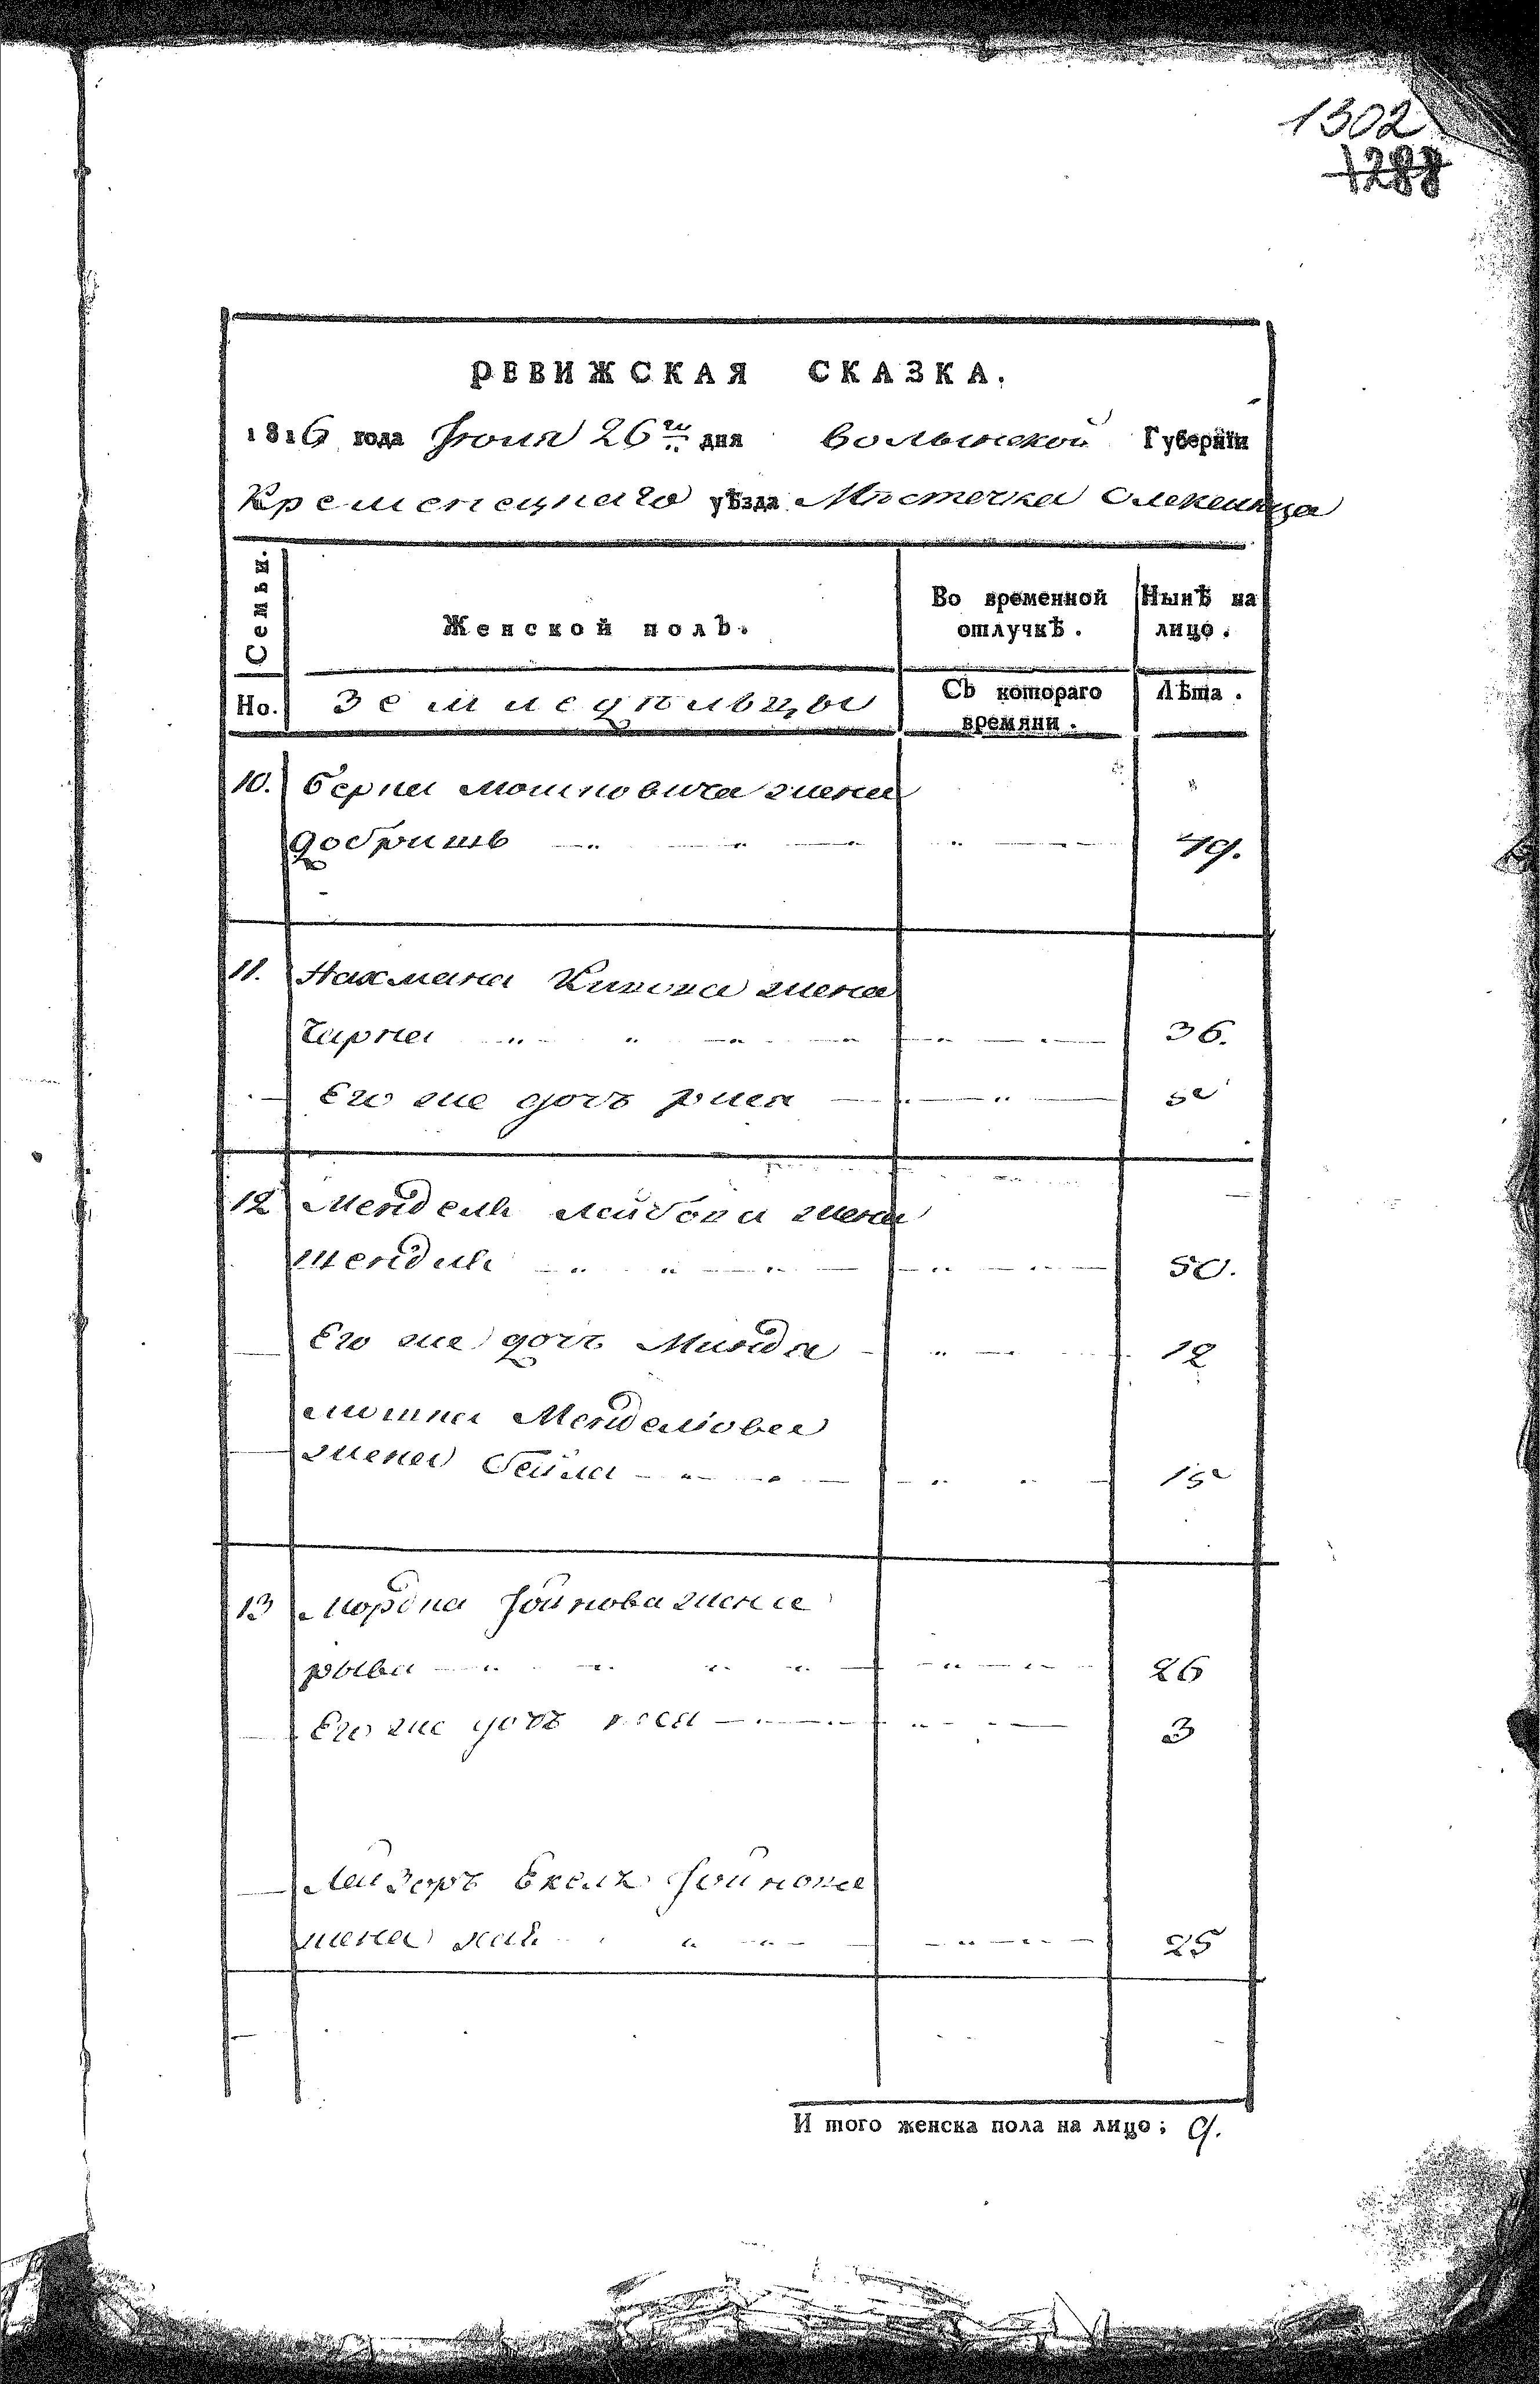 1302
1288
РЕВИЖСКАЯ СКАЗКА.
1816 года Іюня 26го дня Волынской Губерніи
Кременецкаго уѣзда Мѣстечка Олексинца
Семьи.
Женской полъ.
Во временной отлучкѣ.
Нынѣ на лицо.
Но.
Земледѣльцы
Съ котораго времяни.
Лѣта.
10. Берка Мошковича жена
Добришь 49.
11. Нахмана жена
Чарна 36.
Его же дочь Рися 5
12 Мендель Лейбова жена
Шендль 50.
Его же дочь Минда 12
Мошка Менделіова
жена Бейла 15
13 Мордка Іойнова жена
Рыва 26
Его же дочь 3
Лейзоръ Екель Іойнова
жена Хая 25
И того женска пола на лицо; 9.